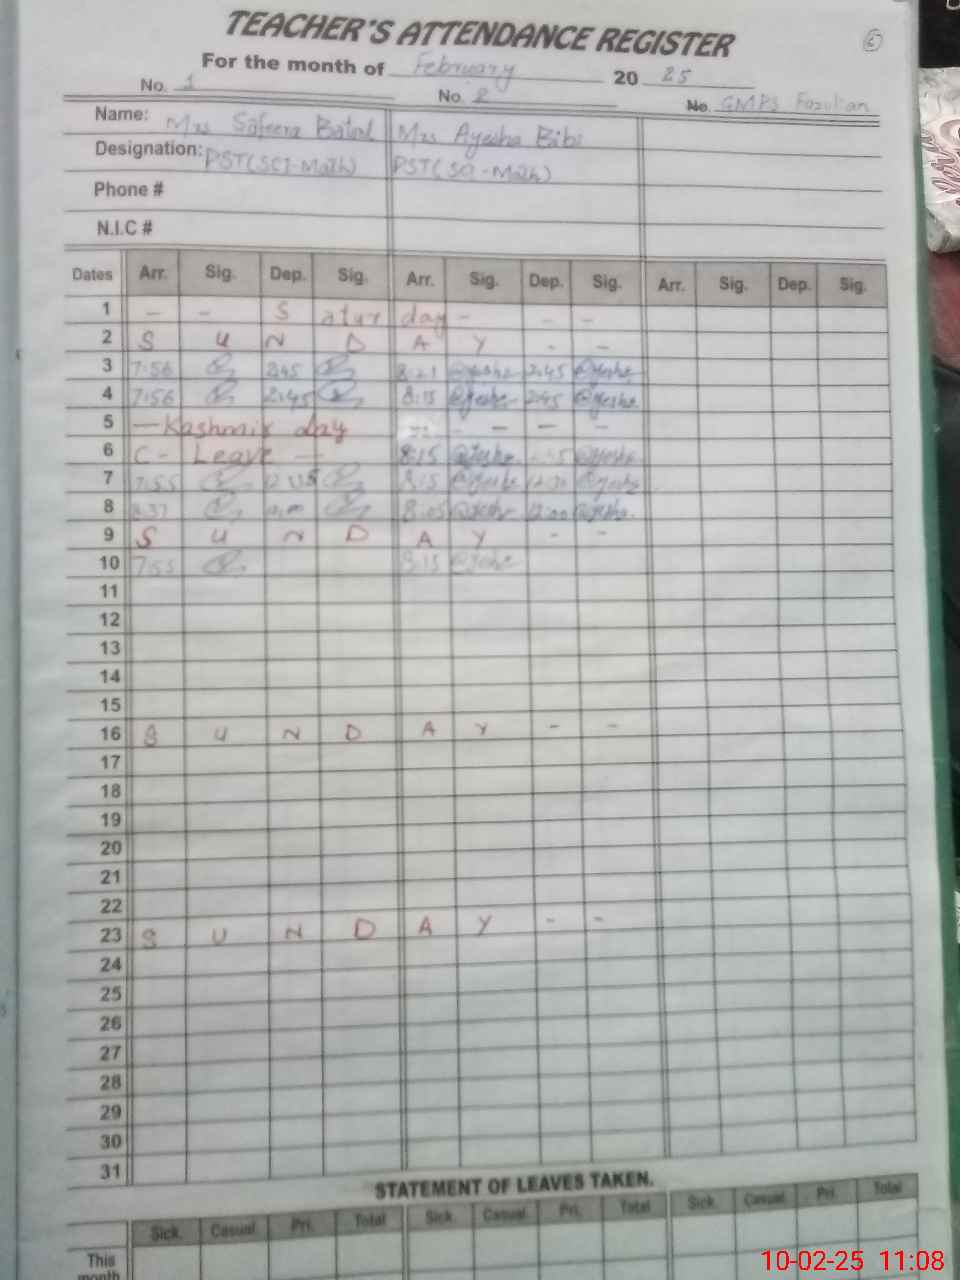 TEACHER'S ATTENDANCE REGISTER
6
For the month of February 20 25
No. 1 No. 2 No. GMPS Fazulian
Name: Mrs Safeena Batool Mrs Ayesha Bibi
Designation: PST(SCI-Math) PST(SCI-Math)
Phone #
N.I.C #
Dates Arr. Sig. Dep. Sig. Arr. Sig. Dep. Sig. Arr. Sig. Dep. Sig.
1 - - S atur day - - -
2 S U N D A Y - -
3 7:56 2:45 8:21 @yesha 2:45 @yesha
4 7:56 2:45 8:15 @yesha 2:45 @yesha
5 — Kashmir day - - - -
6 C - Leave - 8:15 @yesha @yesha
7 7:55 8:15 @yesha @yesha
8 8:05 @yesha 12:00 @yesha
9 S U N D A Y - -
10 7:55 8:15 @yesha
11
12
13
14
15
16 S U N D A Y - -
17
18
19
20
21
22
23 S U N D A Y - -
24
25
26
27
28
29
30
31
STATEMENT OF LEAVES TAKEN.
Sick. Casual. Pri. Total Sick. Casual. Pri. Total Sick. Casual. Pri. Total
This
month
10-02-25 11:08